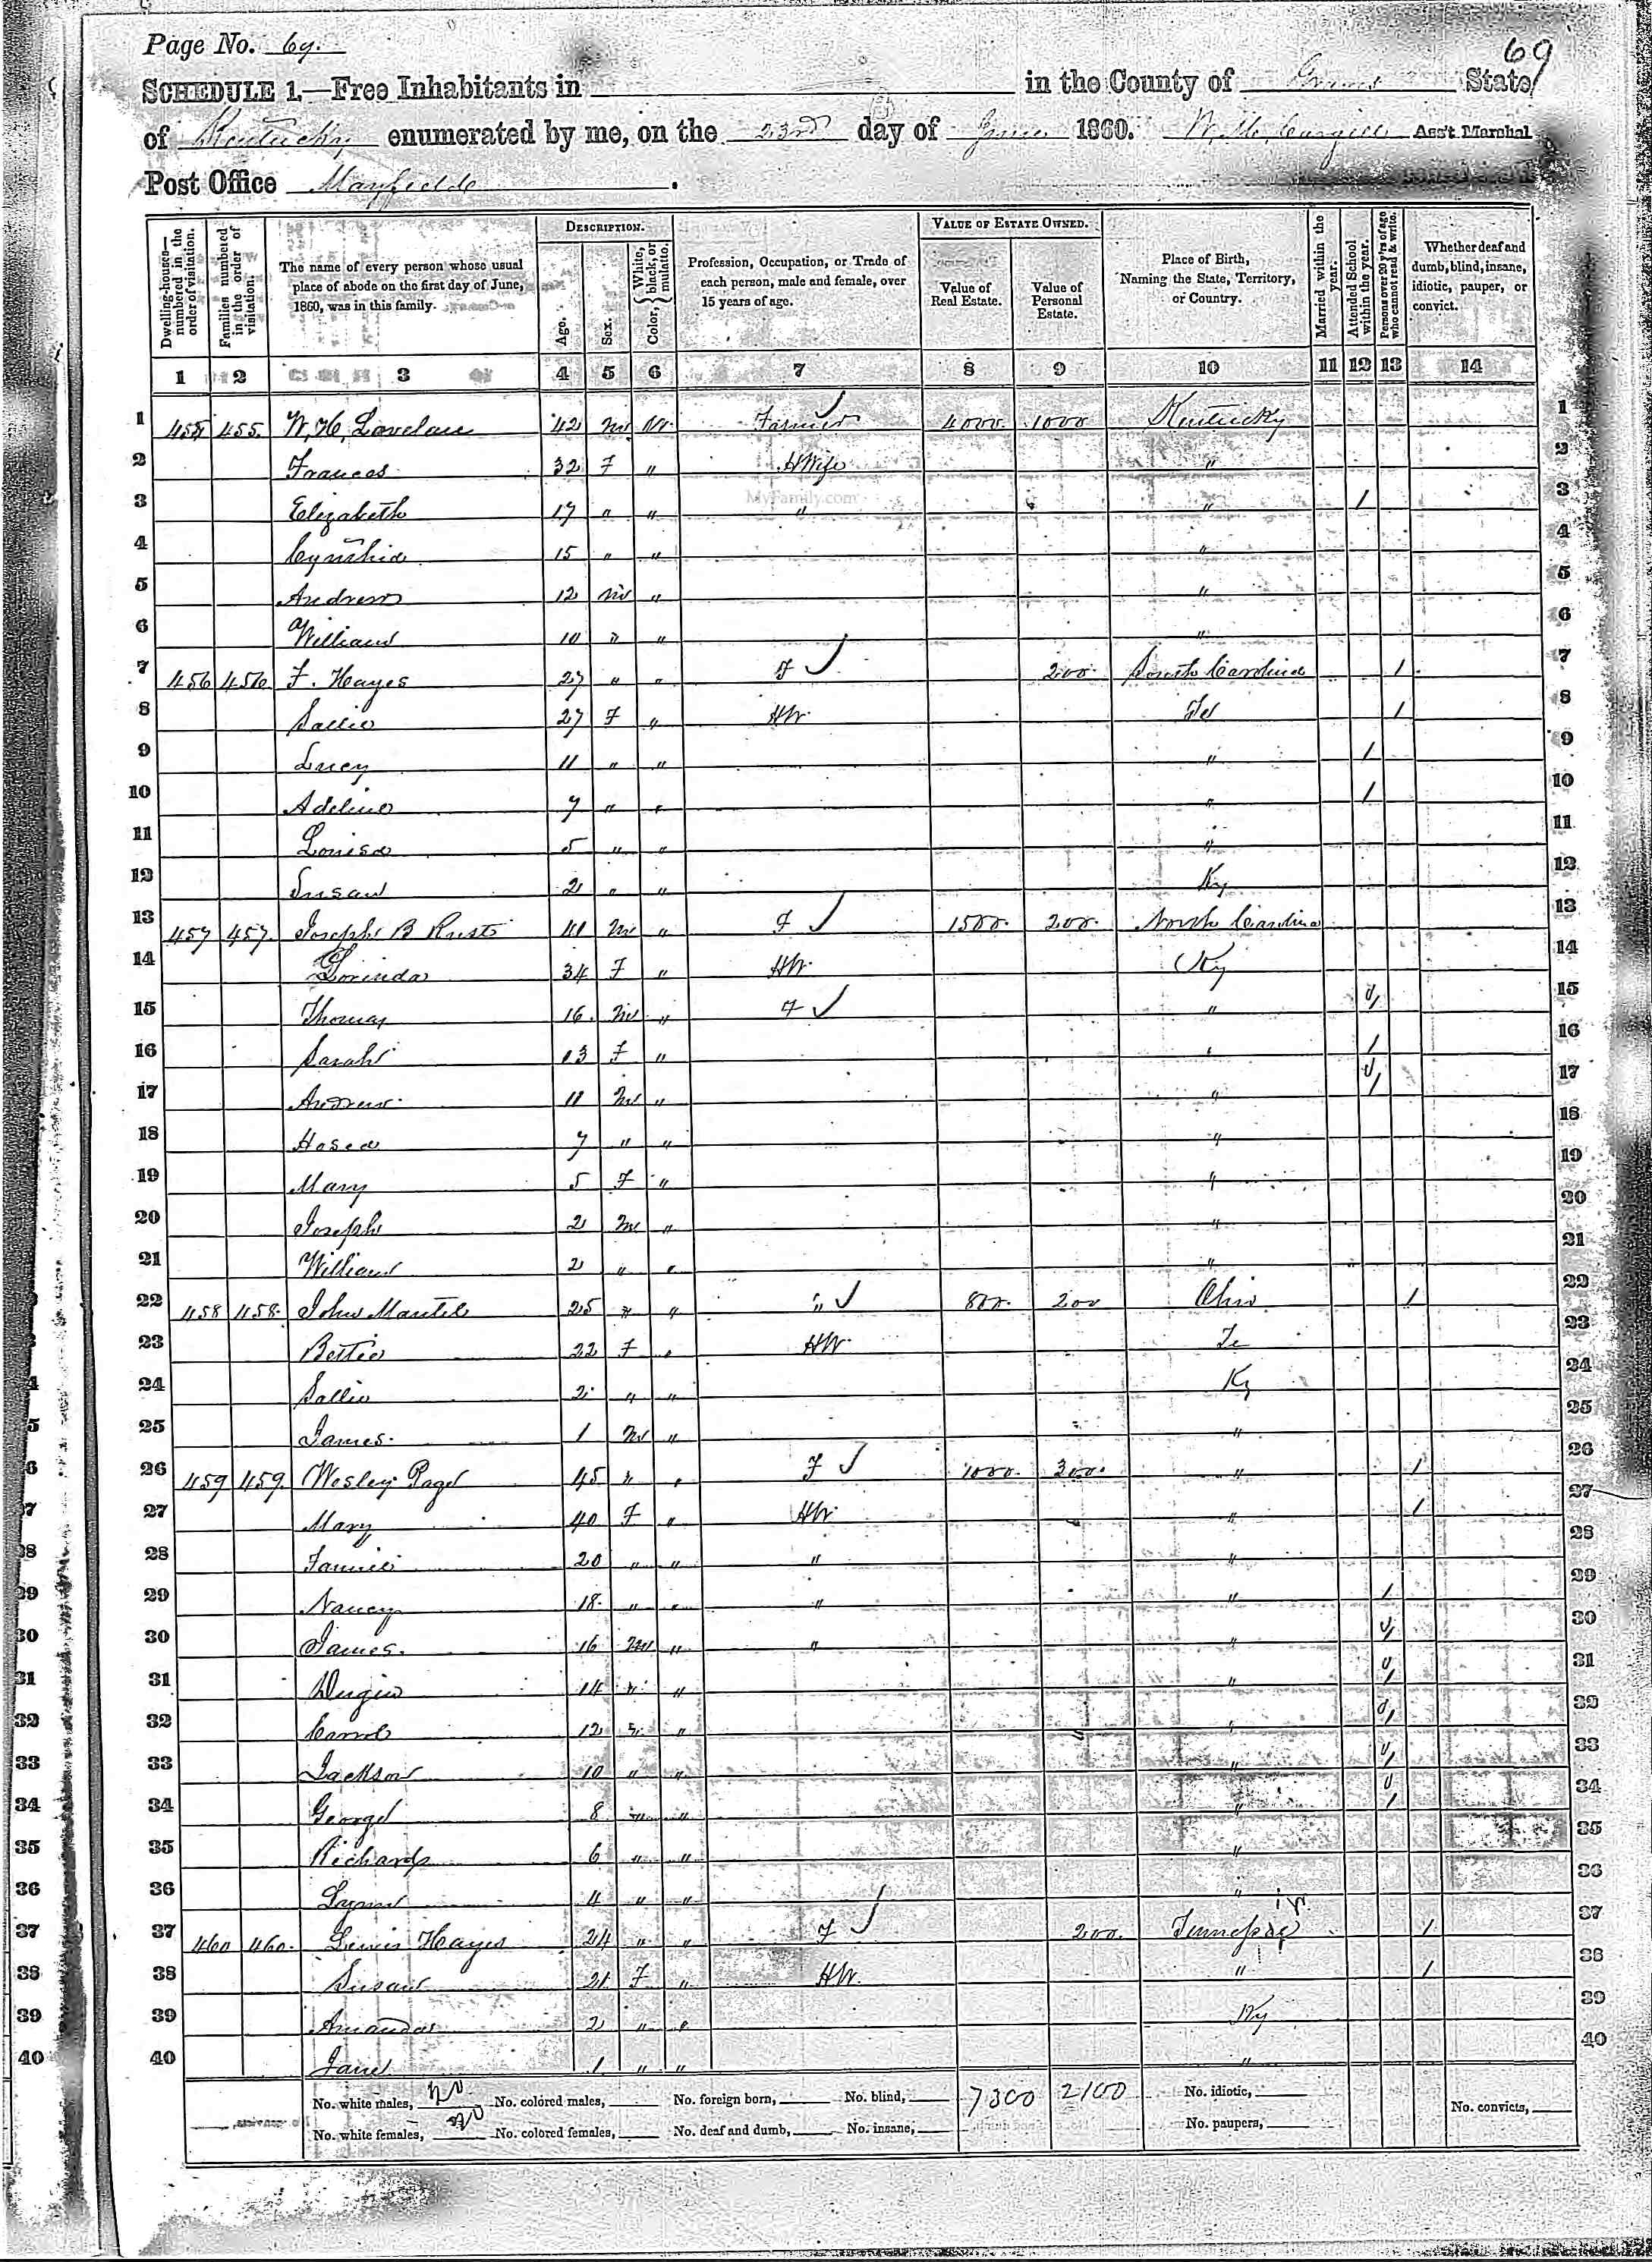 Page No. 69. 69
SCHEDULE 1.—Free Inhabitants in in the County of State
of Kentucky enumerated by me, on the 23rd day of June 1860. Ass't Marshal
Post Office Mayfield.
DESCRIPTION. VALUE OF ESTATE OWNED.
Dwelling-houses—numbered in the order of visitation.
Families numbered in the order of visitation.
The name of every person whose usual place of abode on the first day of June, 1860, was in this family.
Age. Sex. Color, { White, black, or mulatto.
Profession, Occupation, or Trade of each person, male and female, over 15 years of age.
Value of Real Estate. Value of Personal Estate.
Place of Birth, Naming the State, Territory, or Country.
Married within the year. Attended School within the year. Persons over 20 y'rs of age who cannot read & write.
Whether deaf and dumb, blind, insane, idiotic, pauper, or convict.
1 2 3 4 5 6 7 8 9 10 11 12 13 14
1 455 455. W, H, Lovelace 42 m W. Farmer 4000 1000 Kentucky 1
2 Frances 32 F " HWife " 2
3 MyFamily.com Elizabeth 17 " " " " / 3
4 Cynthia 15 " " " 4
5 Andrew 12 m " " 5
6 William 10 " " " 6
7 456 456 F. Hayes 27 " " F 200. South Carolina / 7
8 Sallie 27 F " HW. Te / 8
9 Lucy 11 " " " / 9
10 Adeline 7 " " " / 10
11 Louisa 5 " " " 11
12 Susan 2 " " Ky 12
13 457 457. Joseph B 41 M " F 1500. 200. North Carolina 13
14 Lorinda 34 F " HW. Ky 14
15 Thomas 16. M " F " / 15
16 Sarah 13 F " " / 16
17 Andrew 11 M " " / 17
18 Hosea 7 " " " 18
19 Mary 5 F " " 19
20 Joseph 2 M " " 20
21 William 2 " " " 21
22 458 458. John 25 " " " 800. 200 Ohio / 22
23 Bettie 22 F " HW. Te 23
24 Sallie 2 " " Ky 24
25 James. 1 M " " 25
26 459 459. Wesley Page 45 " " F 1000. 300. " / 26
27 Mary 40 F " HW " / 27
28 Fannie 20 " " " " 28
29 Nancy 18. " " " " / 29
30 James. 16 M " " " / 30
31 14 " " " / 31
32 12 " " " / 32
33 Jackson 10 " " " / 33
34 George 8 " " " / 34
35 Richard 6 " " " 35
36 4 " " " 36
37 460 460. Lewis Hayes 24 " " F 200. Tennessee / 37
38 Susan 21 F " HW. " / 38
39 Amanda 2 " " Ky 39
40 Jane 1 " " " 40
No. white males, 20 No. colored males, No. foreign born, No. blind, 7300 2100 No. idiotic,
No. white females, 20 No. colored females, No. deaf and dumb, No. insane, No. paupers, No. convicts,